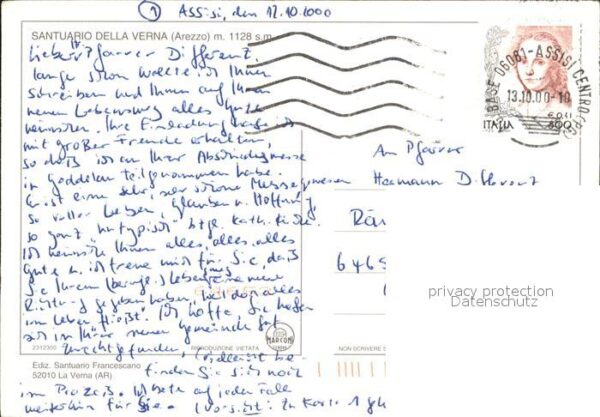 ① Assisi, den 12.10.2000
SANTUARIO DELLA VERNA (Arezzo) m. 1128 s.m.
Lieber Pfarrer Differenz,
lange schon wollte ich Ihnen
schreiben und Ihnen auf Ihrem
neuen Lebensweg alles Gute
wünschen. Ihre Einladung habe ich
mit großer Freude erhalten,
so daß ich an Ihrer Abschiedsmesse
in Goddelau teilgenommen habe.
Es ist eine sehr, sehr schöne Messe gewesen
so voller Leben, Glauben u. Hoffnung,
so ganz "untypisch" bzgl. kath. Kirche.
Ich wünsche Ihnen alles, alles, alles
Gute u. ich freue mich für Sie, daß
Sie Ihrem Leben eine neue
Richtung gegeben haben, weil doch alles
im Leben fließt. Ich hoffe, Sie haben
sich in Ihrer neuen Gemeinde gut
zurechtgefunden,
finden Sie sich noch
im Prozeß. Ich bete auf jeden Fall
weiterhin für Sie. zu Karte
06081-ASSISI CENTRO (PG)
13.10.00-10
ITALIA 800
An Pfarrer
Hermann Differenz
646
privacy protection
Datenschutz
2312300
RIPRODUZIONE VIETATA
MARCONI
NON SCRIVERE S
Ediz. Santuario Francescano
52010 La Verna (AR)